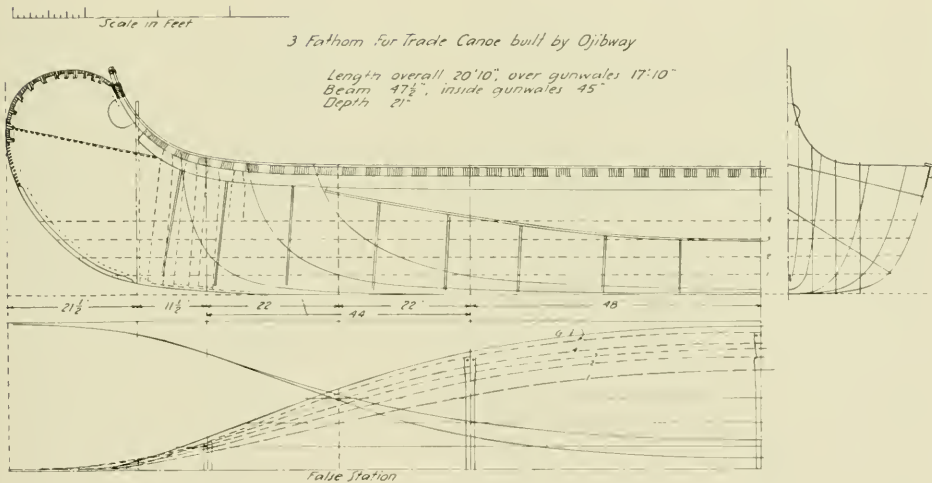 Scale in Feet
3 Fathom Fur Trade Canoe built by Ojibway
Length overall 20'10", over gunwales 17'10"
Beam 47½", inside gunwales 45"
Depth 21"
4
3
2
1
21½ 11½ 22 22 48
44
4
3
2
1
False Station